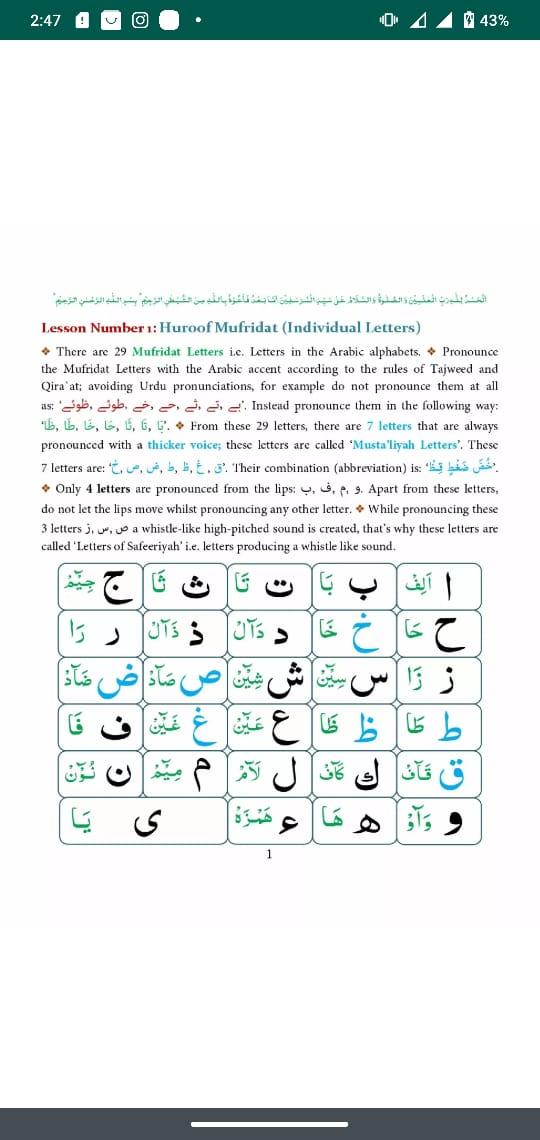 2:47
43%
اَلْحَمْدُ لِلّٰهِ رَبِّ الْعٰلَمِیْنَ وَالصَّلٰوةُ وَالسَّلَامُ عَلٰی سَیِّدِ الْمُرْسَلِیْنَ اَمَّا بَعْدُ فَاَعُوْذُ بِاللّٰهِ مِنَ الشَّیْطٰنِ الرَّجِیْمِ ؕ بِسْمِ اللّٰهِ الرَّحْمٰنِ الرَّحِیْمِ ؕ
Lesson Number 1: Huroof Mufridat (Individual Letters)
❖ There are 29 Mufridat Letters i.e. Letters in the Arabic alphabets. ❖ Pronounce
the Mufridat Letters with the Arabic accent according to the rules of Tajweed and
Qira`at; avoiding Urdu pronunciations, for example do not pronounce them at all
as: 'بے, تے, ثے, حے, خے, طوئے, ظوئے'. Instead pronounce them in the following way:
'بَا, تَا, ثَا, حَا, خَا, طَا, ظَا'. ❖ From these 29 letters, there are 7 letters that are always
pronounced with a thicker voice; these letters are called 'Musta'liyah Letters'. These
7 letters are: 'خ, ص, ض, ط, ظ, غ, ق'. Their combination (abbreviation) is: 'خُصَّ ضَغْطٍ قِظْ'.
❖ Only 4 letters are pronounced from the lips: ب, ف, م, و. Apart from these letters,
do not let the lips move whilst pronouncing any other letter. ❖ While pronouncing these
3 letters ز, س, ص a whistle-like high-pitched sound is created, that's why these letters are
called 'Letters of Safeeriyah' i.e. letters producing a whistle like sound.
ا اَلِفْ ب بَا ت تَا ث ثَا ج جِیْٓمْ
ح حَا خ خَا د دَآلْ ذ ذَآلْ ر رَا
ز زَا س سِیْٓنْ ش شِیْٓنْ ص صَآدْ ض ضَآدْ
ط طَا ظ ظَا ع عَیْٓنْ غ غَیْٓنْ ف فَا
ق قَآفْ ك كَآفْ ل لَآمْ م مِیْٓمْ ن نُوْٓنْ
و وَآوْ ه هَا ء هَمْزَهْ ی یَا
1